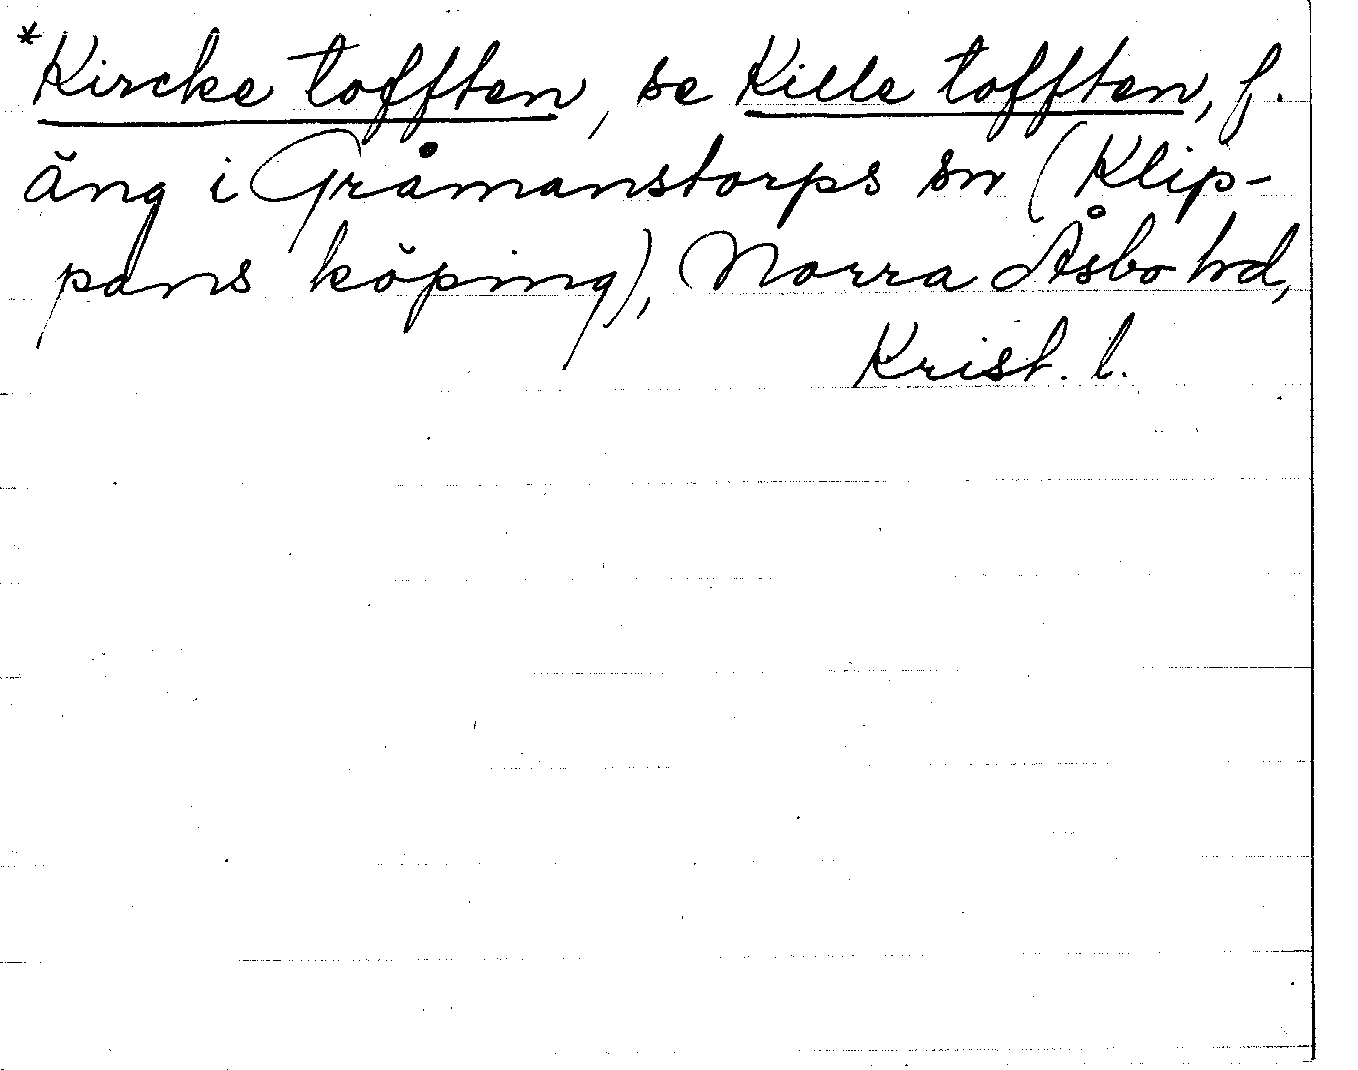 *Kircke tofften, se Kille tofften, f.
äng i Gråmanstorps sn (Klip-
pans köping), Norra Åsbo hd,
Krist. l.